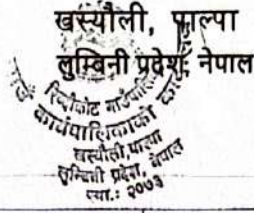 खस्यौली, पाल्पा
लुम्बिनी प्रदेश, नेपाल
रिब्दीकोट गाउँपालिका
गाउँ कार्यपालिकाको
खस्यौली, पाल्पा
लुम्बिनी प्रदेश, नेपाल
स्था.: २०७३